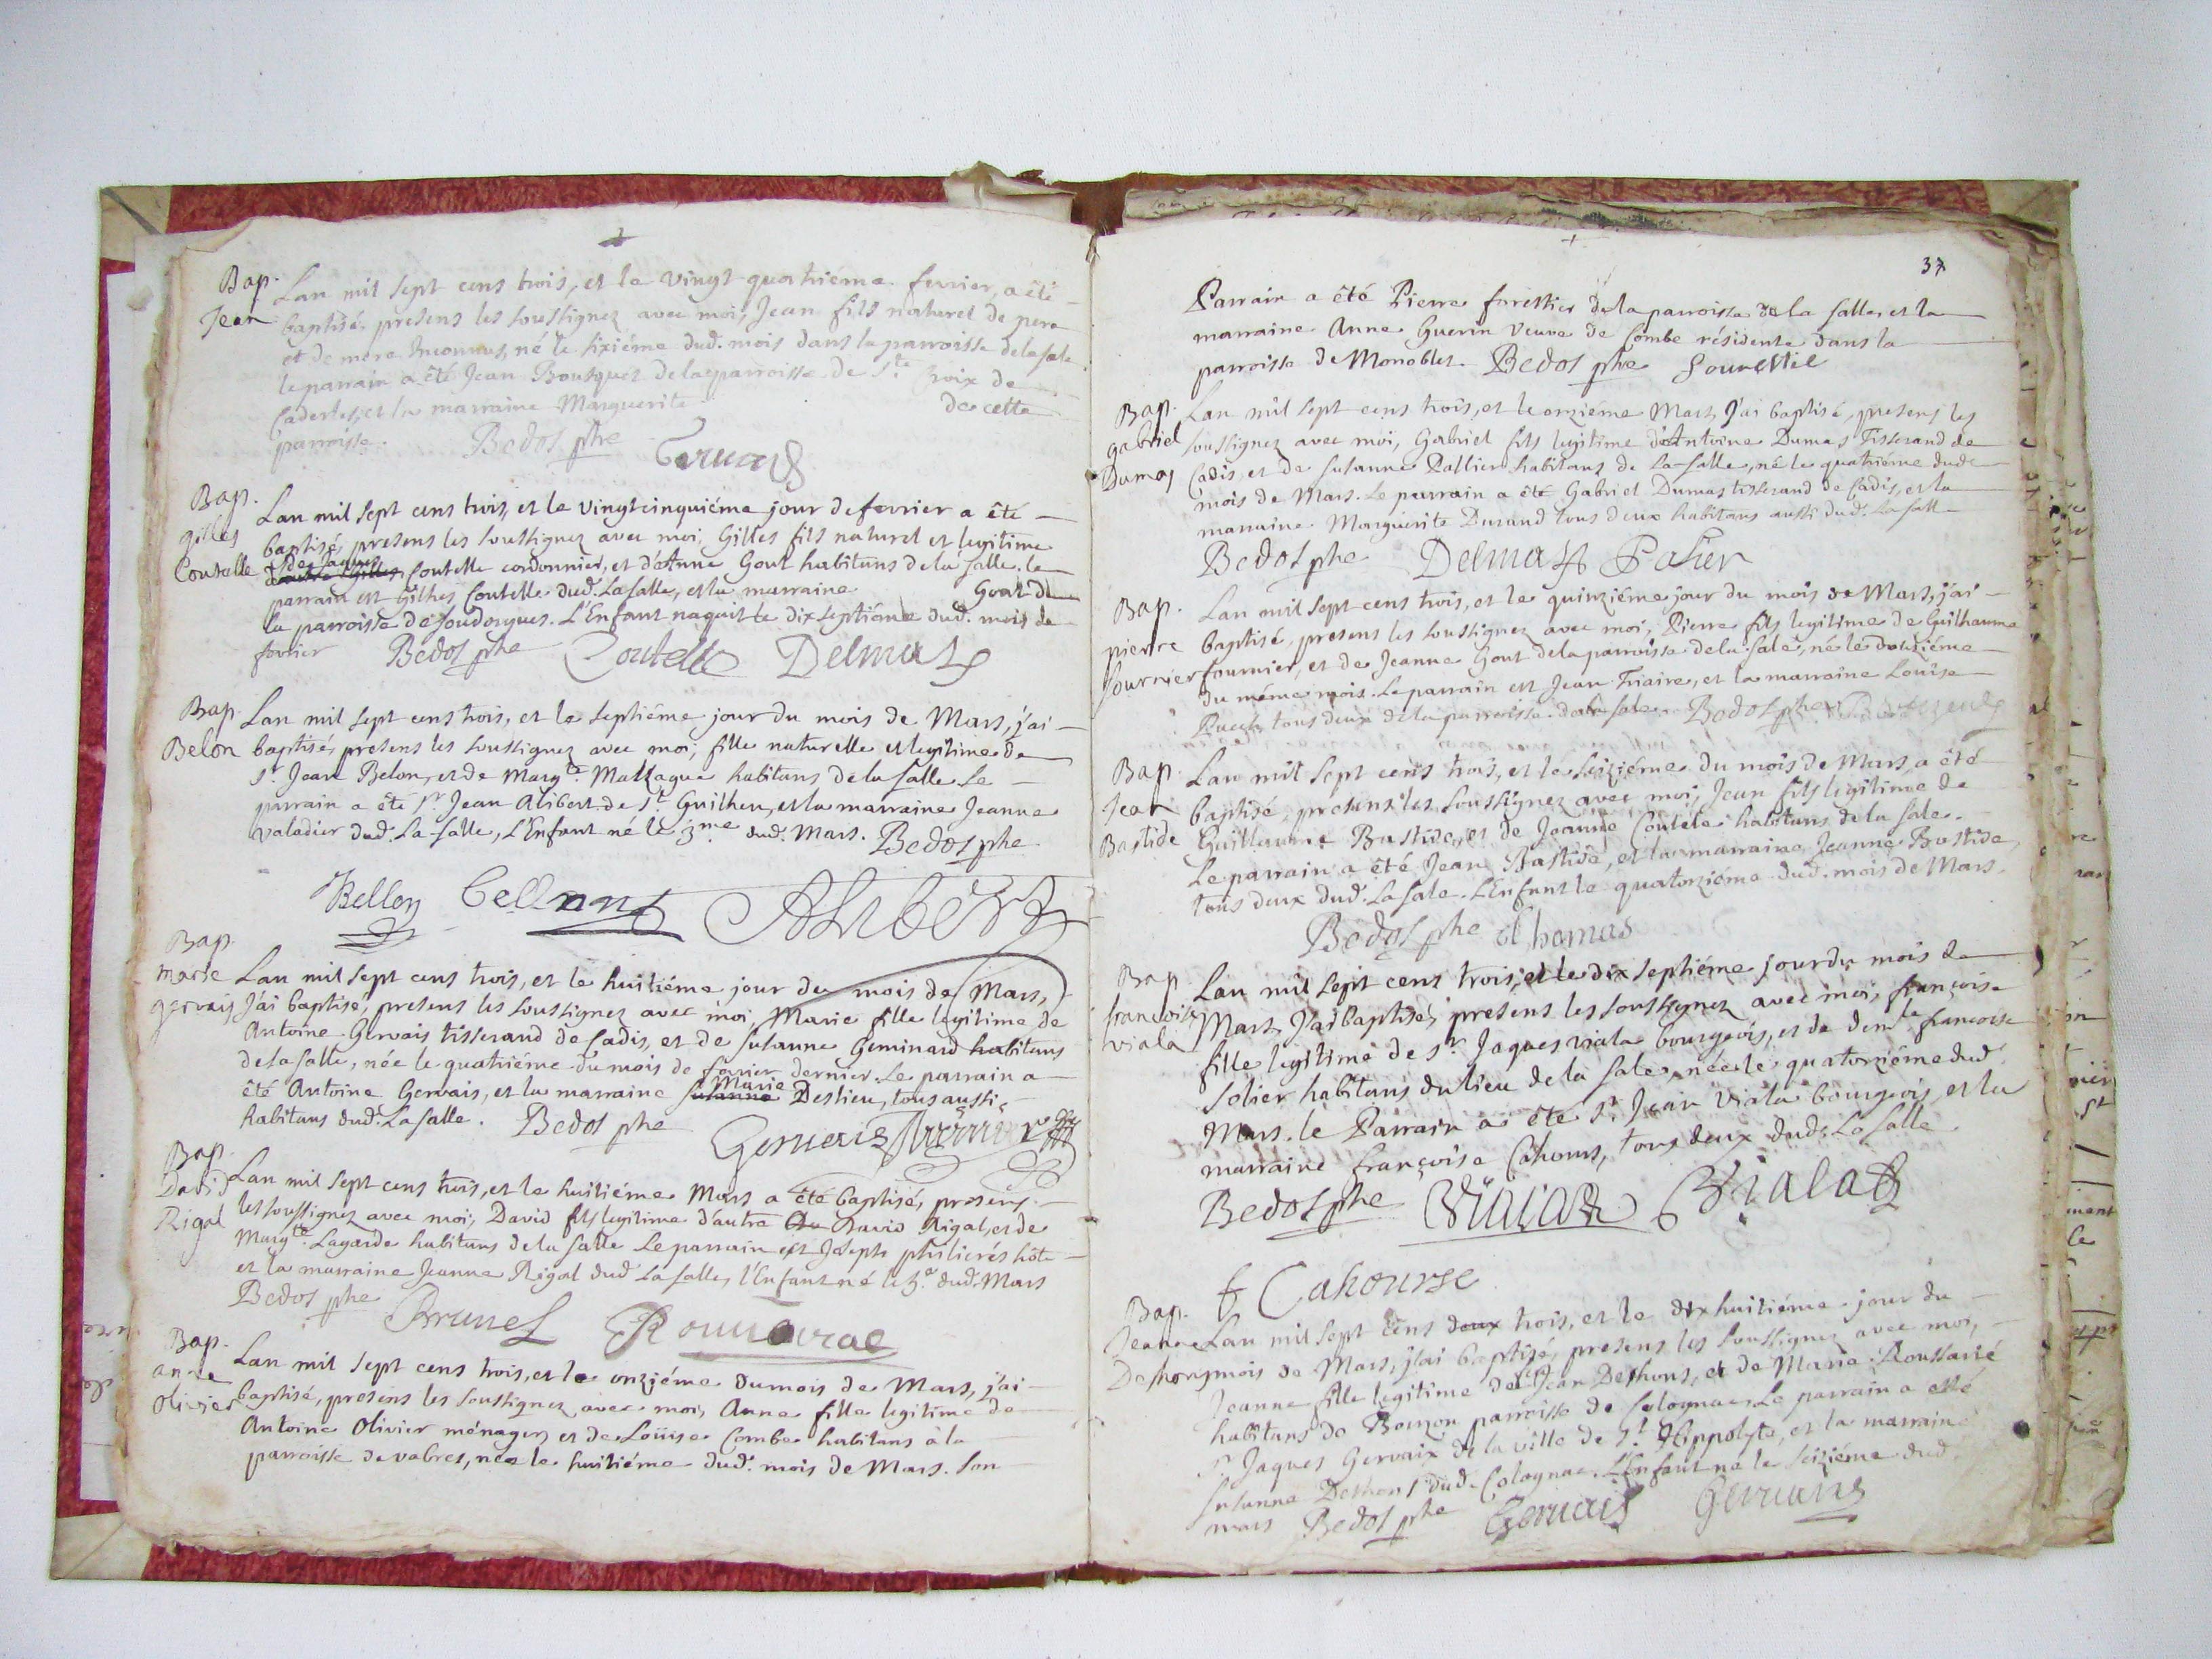 Bap.
Jean
Lan mil sept cens trois, et le vingt quatriéme fevrier, a êté
baptisé, presens les soussignez avec moi, Jean fils naturel de pere
et de mere Inconnus, né le sixiéme dud. mois dans la parroisse de la sale
le parrain a êté Jean Bousquet de la parroisse de Ste Croix de
Caderles, et la marraine Marguerite de cette
parroisse. Bedos phre Gervais
Bap.
gilles
Coutelle
Lan mil sept cens trois, et le vingt cinquiéme jour de fevrier a êté
baptisé, presens les soussignez avec moi, Gilles fils naturel et legitime
Coutelle cordonnier, et d'Anne Gout habitans de la salle. le
parrain est Gilhes Coutelle dud. Lasalle, et la marraine Gout de
la parroisse de soudorgues. L'Enfant naquit le dix septiéme dud. mois de
fevrier Bedos phre Coutelle Delmas
Bap.
Belon
Lan mil sept cens trois, et le septiéme jour du mois de Mars, j'ai
baptisé, presens les soussignez avec moi, fille naturelle et legitime de
Sr. Jean Belon, et de Margte. habitans de la salle. Le
parrain a êté Sr. Jean Alibert de St. Guilhen, et la marraine Jeanne
Valadier dud. La salle, L'Enfant né le 3me dud. Mars. Bedos phre
Bellon Alibert
Bap.
marie
gervais
Lan mil sept cens trois, et le huitiéme jour du mois de Mars,
J'ai baptisé, presens les soussignez avec moi Marie fille legitime de
Antoine Gervais tisserand de Cadis, et de Susanne Geminard habitans
de la salle, née le quatriéme du mois de fevrier dernier. Le parrain a
Marie
êté Antoine Gervais, et la marraine susanne Destieu, tous aussi
habitans dud. La salle. Bedos phre Gervais
Bap.
David
Rigal
Lan mil sept cens trois, et le huitiéme Mars a êté baptisé, presens
les soussignez avec moi, David fils legitime d'autre David Rigal, et de
Margte. Lagarde habitans de la salle Le parrain est Joseph philicrés hôte
et la marraine Jeanne Rigal dud. La salle, l'Enfant né le 3e. dud. Mars
Bedos phre Brunel
Bap.
anne
olivier
Lan mil sept cens trois, et le onziéme du mois de Mars, j'ai
baptisé, presens les soussignez avec moi, Anne fille legitime de
Antoine Olivier ménager, et de Loüise Combe habitans à la
parroisse de vabres, née le huitiéme dud. mois de Mars. Son
37
Parrain a êté Pierre forestier de la parroisse de la salle, et la
marraine Anne Guerin veuve de Combe résidente dans la
parroisse de Monoblet. Bedos phre
Bap.
gabriel
Dumas
Lan mil sept cens trois, et le onziéme Mars, J'ai baptisé, presens les
soussignez avec moi, Gabriel fils legitime d'Antoine Dumas Tisserand de
Cadis, et de susanne Pallier habitans de La salle, né le quatriéme dud.
mois de Mars. Le parrain a êté Gabriel Dumas tisserand de Cadis, et la
marraine Marguerite Durand tous deux habitans aussi dud. La salle
Bedos phre Delmas
Bap.
pierre
fournier
Lan mil sept cens trois, et le quinziéme jour du mois de Mars, j'ai
baptisé, presens les soussignez avec moi, Pierre fils legitime de Guilhaume
fournier, et de Jeanne Gout de la parroisse de la sale, né le douziéme
du même mois. Le parrain est Jean Triaire, et la marraine Louise
Puech, tous deux de la parroisse de la sale. Bedos phre
Bap.
Jean
Bastide
Lan mil sept cens trois, et le seiziéme du mois de Mars, a êté
baptisé, presens les soussignez avec moi, Jean fils legitime de
Guillaume Bastide, et de Jeanne Coutele habitans de la sale.
Le parrain a êté Jean Bastide, et la marraine Jeanne Bastide,
tous deux dud. La sale. L'Enfant le quatorziéme dud. mois de Mars.
Bedos phre Thomas
Bap.
françoise
viala
Lan mil sept cens trois, et le dix septiéme jour du mois de
Mars, J'ai baptisé, presens les soussignez avec moi, françoise
fille legitime de Sr. Jaques viala bourgeois, et de demle. françoise
Solier habitans du lieu de la sale, née le quatorziéme dud.
Mars. le Parrain a êté Sr. Jean Viala bourgeois, et la
marraine françoise Cahours, tous deux dud. La salle
Bedos phre Viala Viala
f Cahourse
Bap.
Jeanne
Deshons
Lan mil sept cens deux trois, et le dix huitiéme jour du
mois de Mars, j'ai baptisé, presens les soussignez avec moi,
Jeanne fille legitime de Sr. Jean Deshons, et de Marie Roussarié
habitans de Bouzon parroisse de Colognac. Le parrain a esté
Sr. Jaques Gervaix de la ville de St. Hippolyte, et la marraine
susanne Deshons dud. Colognac. L'Enfant né le seiziéme dud.
mars Bedos phre Gervais